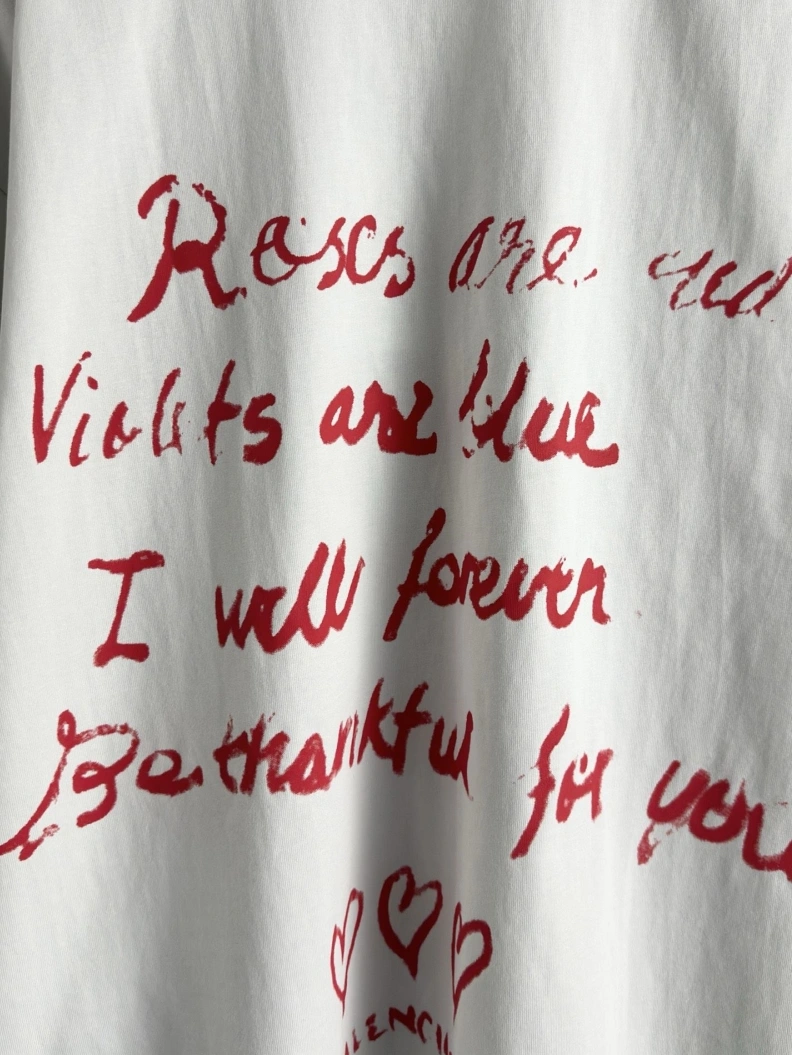 Roses are red
Violets are blue
I will forever
Be thankful for you